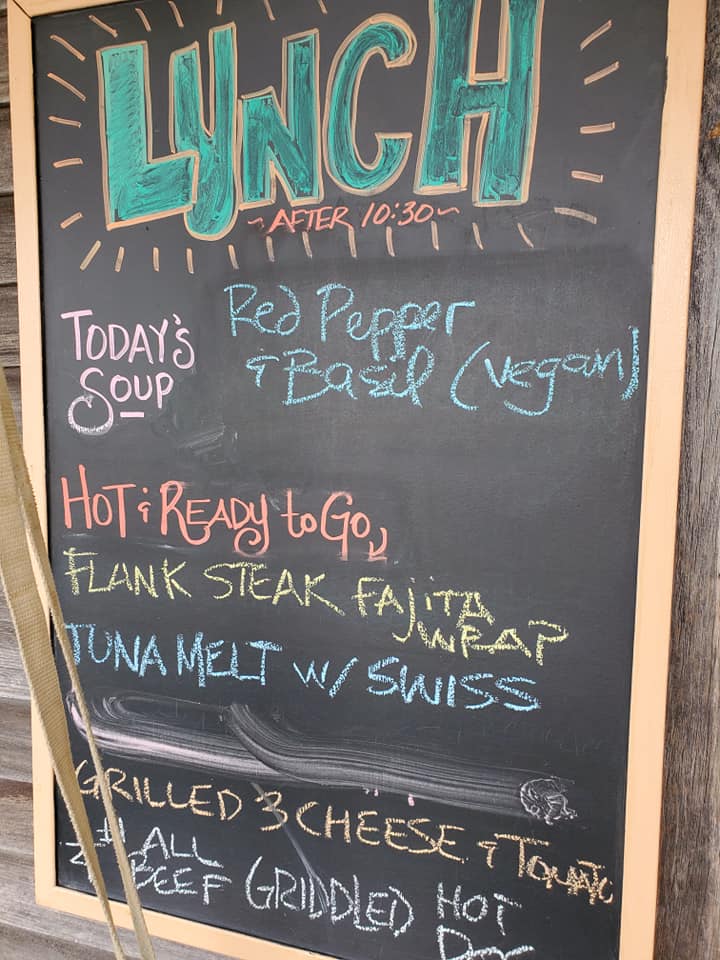 LUNCH
~AFTER 10:30~
TODAY'S SOUP
Red Pepper & Basil (vegan)
HOT & READY to GO
FLANK STEAK FAJITA WRAP
TUNA MELT W/ SWISS
GRILLED 3 CHEESE & TOMATO
ALL BEEF GRIDDLED HOT
DOG